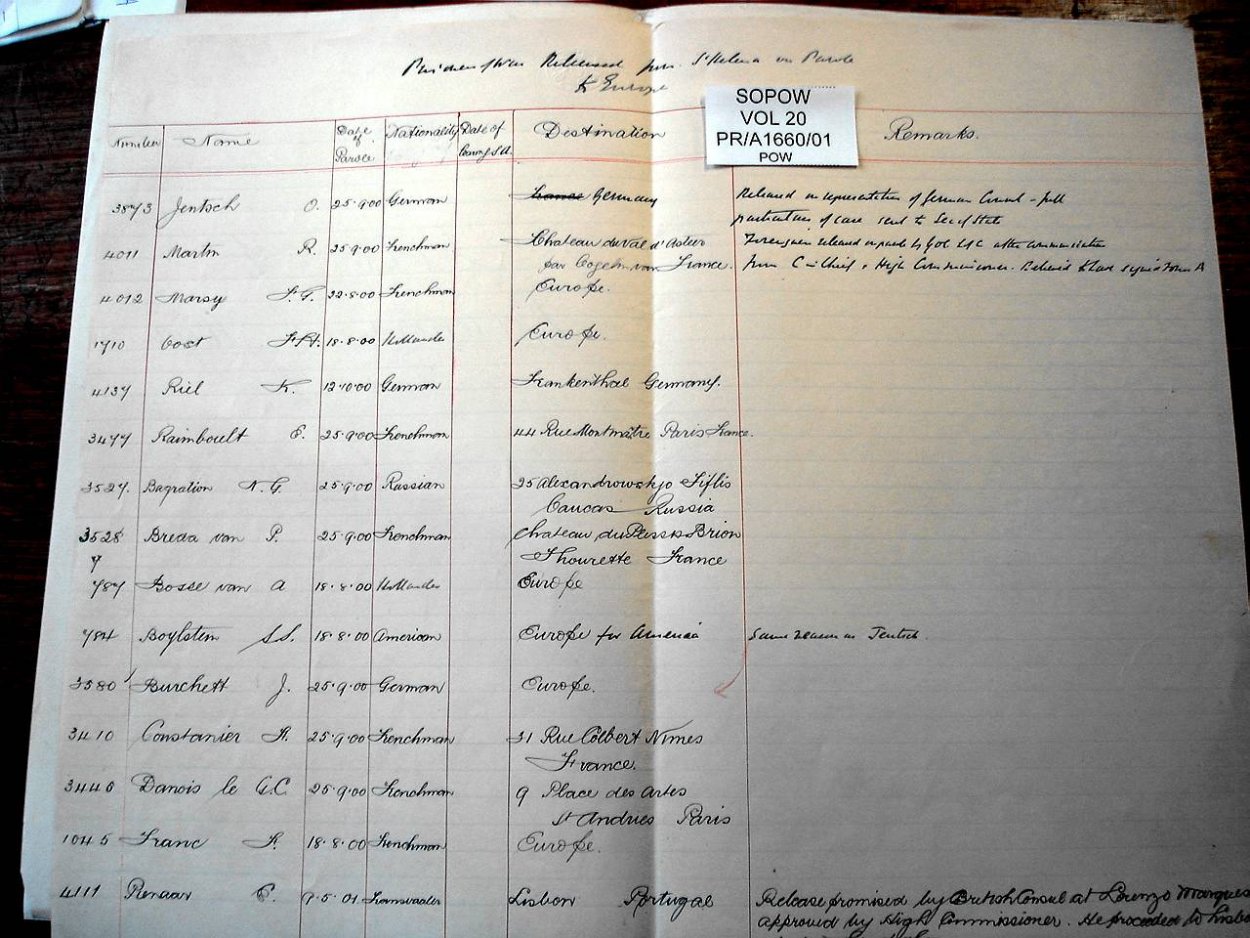 Prisoners of War Released from St Helena on Parole
to Europe
SOPOW
VOL 20
PR/A1660/01
POW
Number Name Date of Parole Nationality Date of Destination Remarks.
3873 Jentsch O. 25.9.00 German France Germany Released on representation of German Consul - full
particulars of case sent to Sec of State
4011 Martin R. 25.9.00 Frenchman Chateau du Val d'Astier released on parole by GOC after communication
par Cogolin var France. from C in Chief & High Commissioner. Form A
4012 Marsy F.G. 22.8.00 Frenchman Europe.
1710 Oost 18.8.00 Hollander Europe.
4137 Riel K. 12.10.00 German Frankenthal Germany.
3477 Raimboult E. 25.9.00 Frenchman 44 Rue Montmâtre Paris France.
3527. Bagration N.G. 25.9.00 Russian 25 Tiflis
Caucas Russia
3528 Breda van P. 25.9.00 Frenchman Chateau du Plessis Brion
Thourette France
787 Bosse van A 18.8.00 Hollander Europe
784 Boylsten S.S. 18.8.00 American Europe for America Same reason as Jentsch.
3580 Burchett J. 25.9.00 German Europe.
3410 Constanier A. 25.9.00 Frenchman 31 Rue Colbert Nimes
France.
3446 Danois le G.C. 25.9.00 Frenchman 9 Place des Artes
St Andries Paris
1045 Franc A. 18.8.00 Frenchman Europe.
4111 Renaar C. 9.5.01 Transvaaler Lisbon Portugal Release promised by British Consul at Lorenzo Marques
approved by High Commissioner. He proceeded to Lisbo